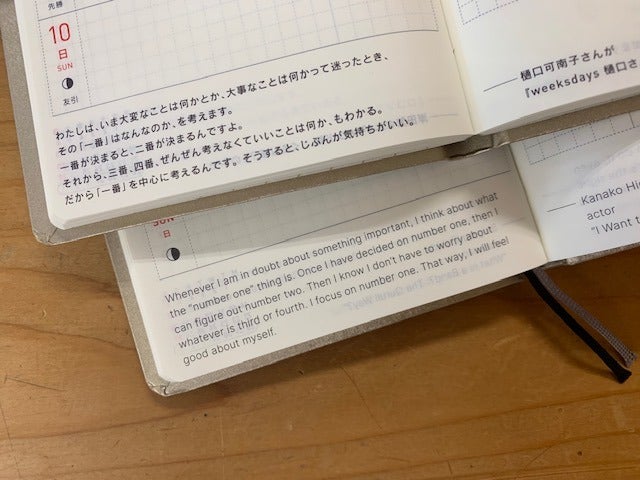 先勝
10
日
SUN
友引
わたしは、いま大変なことは何かとか、大事なことは何かって迷ったとき、
その「一番」はなんなのか、を考えます。
一番が決まると、二番が決まるんですよ。
それから、三番、四番、ぜんぜん考えなくていいことは何か、もわかる。
だから「一番」を中心に考えるんです。そうすると、じぶんが気持ちがいい。
——樋口可南子さんが
『weeksdays 樋口さ
SUN
日
Whenever I am in doubt about something important, I think about what
the "number one" thing is. Once I have decided on number one, then I
can figure out number two. Then I know I don't have to worry about
whatever is third or fourth. I focus on number one. That way, I will feel
good about myself.
— Kanako Hi
actor
"I Want t